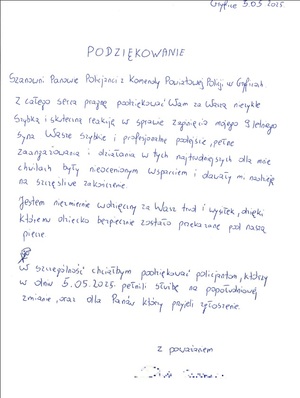 Gryfice 5.05.2025
PODZIĘKOWANIE
Szanowni Panowie Policjanci z Komendy Powiatowej Policji w Gryficach
Z całego serca pragnę podziękować Wam za Waszą niezwykle
szybką i skuteczną reakcję w sprawie zaginięcia mojego 9 letniego
syna. Wasze szybkie i profesjonalne podejście, pełne
zaangażowania i działania w tych najtrudniejszych dla mnie
chwilach były nieocenionym wsparciem i dawały mi nadzieję
na szczęśliwe zakończenie.
Jestem niezmiernie wdzięczny za Wasz trud i wysiłek, dzięki
któremu dziecko bezpiecznie zostało przekazane pod naszą
pieczę.
W szczególności chciałbym podziękować policjantom, którzy
w dniu 5.05.2025 pełnili służbę na popołudniowej
zmianie, oraz dla Panów który przyjęli zgłoszenie.
z poważaniem